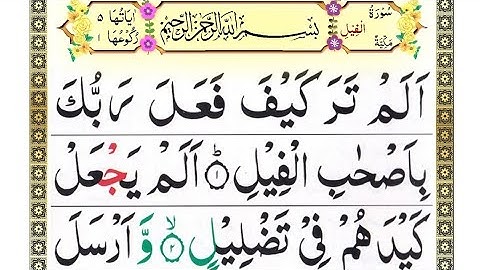 سُوْرَةُ الْفِيْلِ مَكِّيَّةٌ
بِسْمِ اللّٰهِ الرَّحْمٰنِ الرَّحِيْمِ
اٰيَاتُهَا ٥ رُكُوْعُهَا ١
اَلَمْ تَرَ كَيْفَ فَعَلَ رَبُّكَ
بِاَصْحٰبِ الْفِيْلِ ؕ﴿١﴾ اَلَمْ يَجْعَلْ
كَيْدَهُمْ فِيْ تَضْلِيْلٍ ۙ﴿٢﴾ وَّ اَرْسَلَ